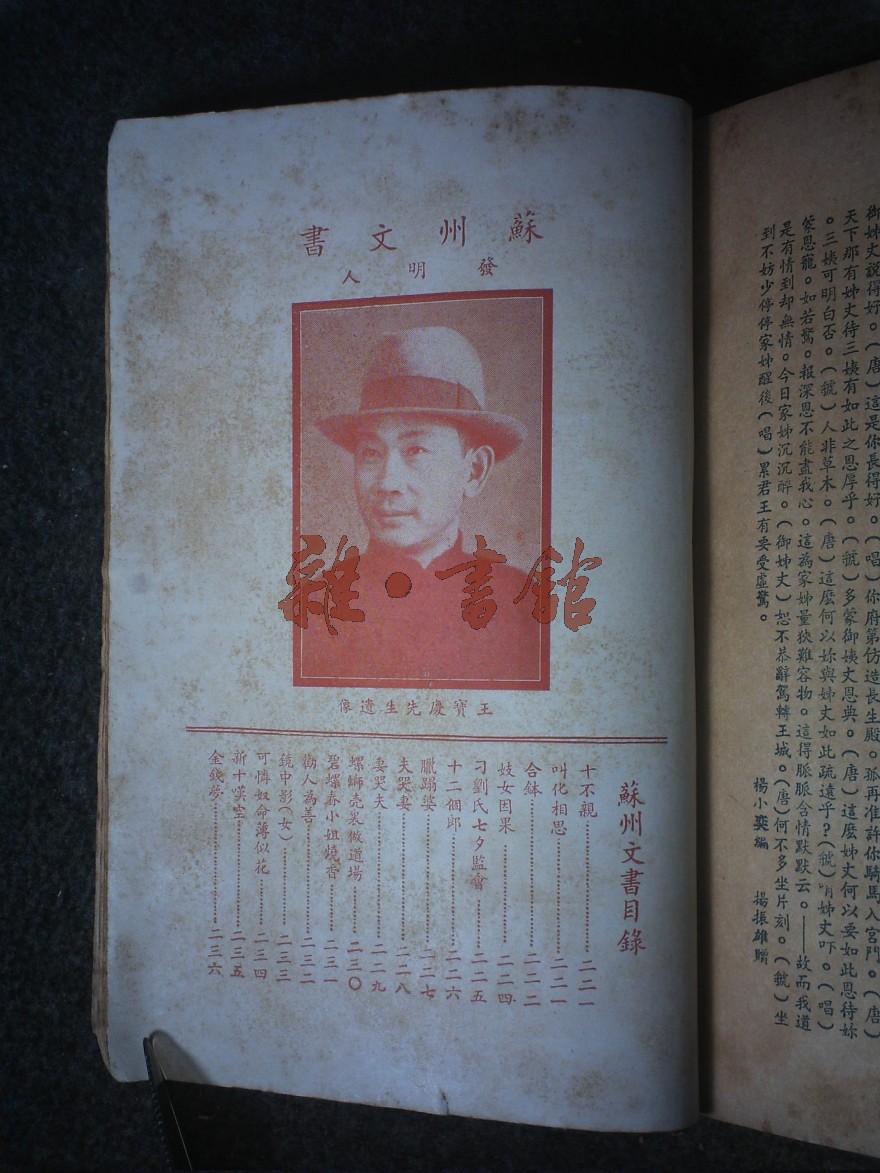 御姊丈說得好。(唐)這是你長得好。(唱)你府第仿造長生殿。孤再准許你騎馬入宮門。(唐)
天下那有姊丈待三姨有如此之恩厚乎。(虢)多蒙御姨丈恩典。(唐)這麽姊丈何以要如此恩待妳
。三姨可明白否。(虢)人非草木。(唐)這麽何以妳與姊丈如此疏遠乎?(虢)唷姊丈吓。(唱)
蒙恩寵。如若驚。報深恩不能盡我心。這為家姊量狹難容物。這得脈脈含情默默云。——故而我道
是有情到却無情。今日家姊沉沉醉。(御姊丈)恕不恭辭駕轉王城。(唐)何不多坐片刻。(虢)坐
到不妨少停停家姊醒後(唱)累君王有要受虛驚。
楊小奕編 楊振雄贈
蘇州文書
發明人
雜·書館
王寶慶先生遺像
蘇州文書目錄
十不親………二二一
叫化相思………二二一
合鉢………二二二
妓女因果………二二四
刁劉氏七夕監會………二二五
十二個郎………二二六
臘蹋婆………二二七
夫哭妻………二二八
妻哭夫………二二九
螺螄壳裏做道場………二三〇
碧螺春小姐燒香………二三一
勸人為善………二三二
鏡中影(女)………二三三
可憐奴命薄似花………二三四
新十嘆空………二三五
金錢夢………二三六